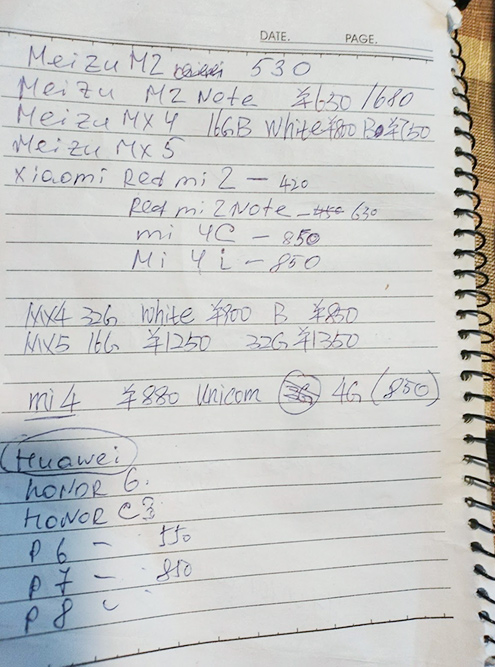 DATE. PAGE.
Meizu M2 530
Meizu M2 Note ¥630/680
Meizu MX4 16GB white ¥800 B ¥750
Meizu MX5
Xiaomi Red mi 2 - 420
Red mi 2 Note - 450 630
mi 4C - 850
Mi 4i - 850
MX4 32G white ¥900 B ¥850
MX5 16G ¥1250 32G ¥1350
mi4 ¥880 Unicom 3G 4G (850)
Huawei
HONOR 6.
HONOR C3
P6 - 550
P7 - 850
P8 -